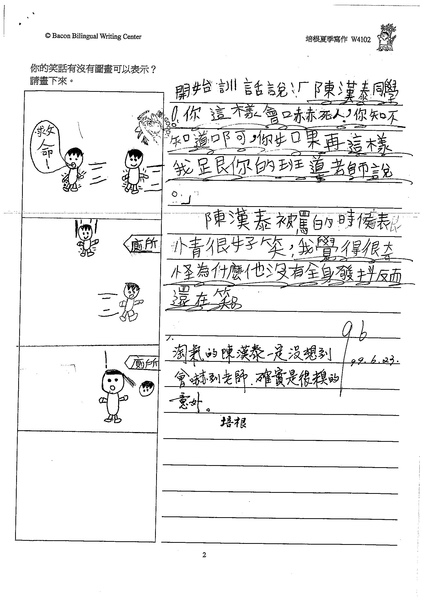 © Bacon Bilingual Writing Center
培根夏季寫作 W4102
你的笑話有沒有圖畫可以表示?
請畫下來。
救
命
廁所
廁所
開始訓話說:「陳漢泰同學
你這樣會嚇死人,你知不
知道啊可,你如果再這樣
我足艮你的班導老師說
。」
陳漢泰被罵的時候表
情很好笑,我覺得很奇
怪為什麼他沒有全身發抖反而
還在笑
96
99.6.23.
淘氣的陳漢泰一定沒想到
會嚇到老師,確實是很糗的
意外。
培根
2